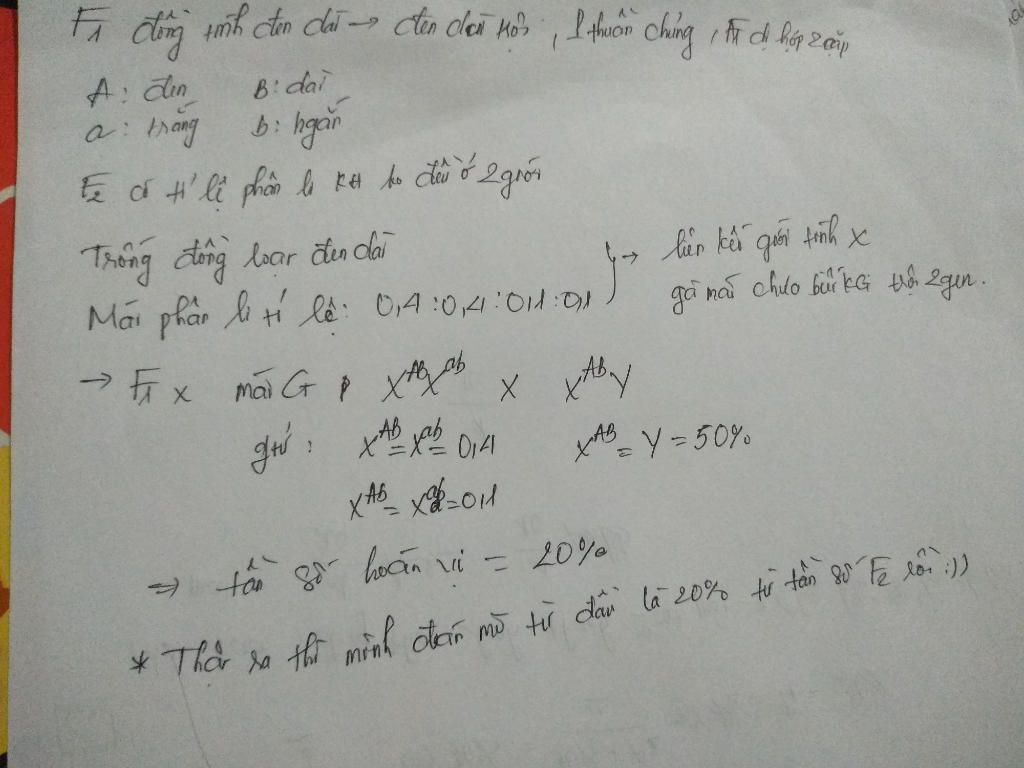 F1 đồng tính đen dài → đen dài trội, P thuần chủng, F1 dị hợp 2 cặp
A: đen B: dài
a: trắng b: ngắn
F2 có tỉ lệ phân li KH ko đều ở 2 giới
Trống đồng loạt đen dài
Mái phân li tỉ lệ: 0,4:0,4:0,1:0,1
→ liên kết giới tính X
gà mái chứa KG trội 2 gen.
→ F1 x mái G X^AB X^ab x X^AB Y
gtử: X^AB = X^ab = 0,4 X^AB = Y = 50%
X^Ab = 0,1
⇒ tần số hoán vị = 20%
* Thật ra thì mình đoán mò từ đầu là 20% từ tần số F2 rồi :))